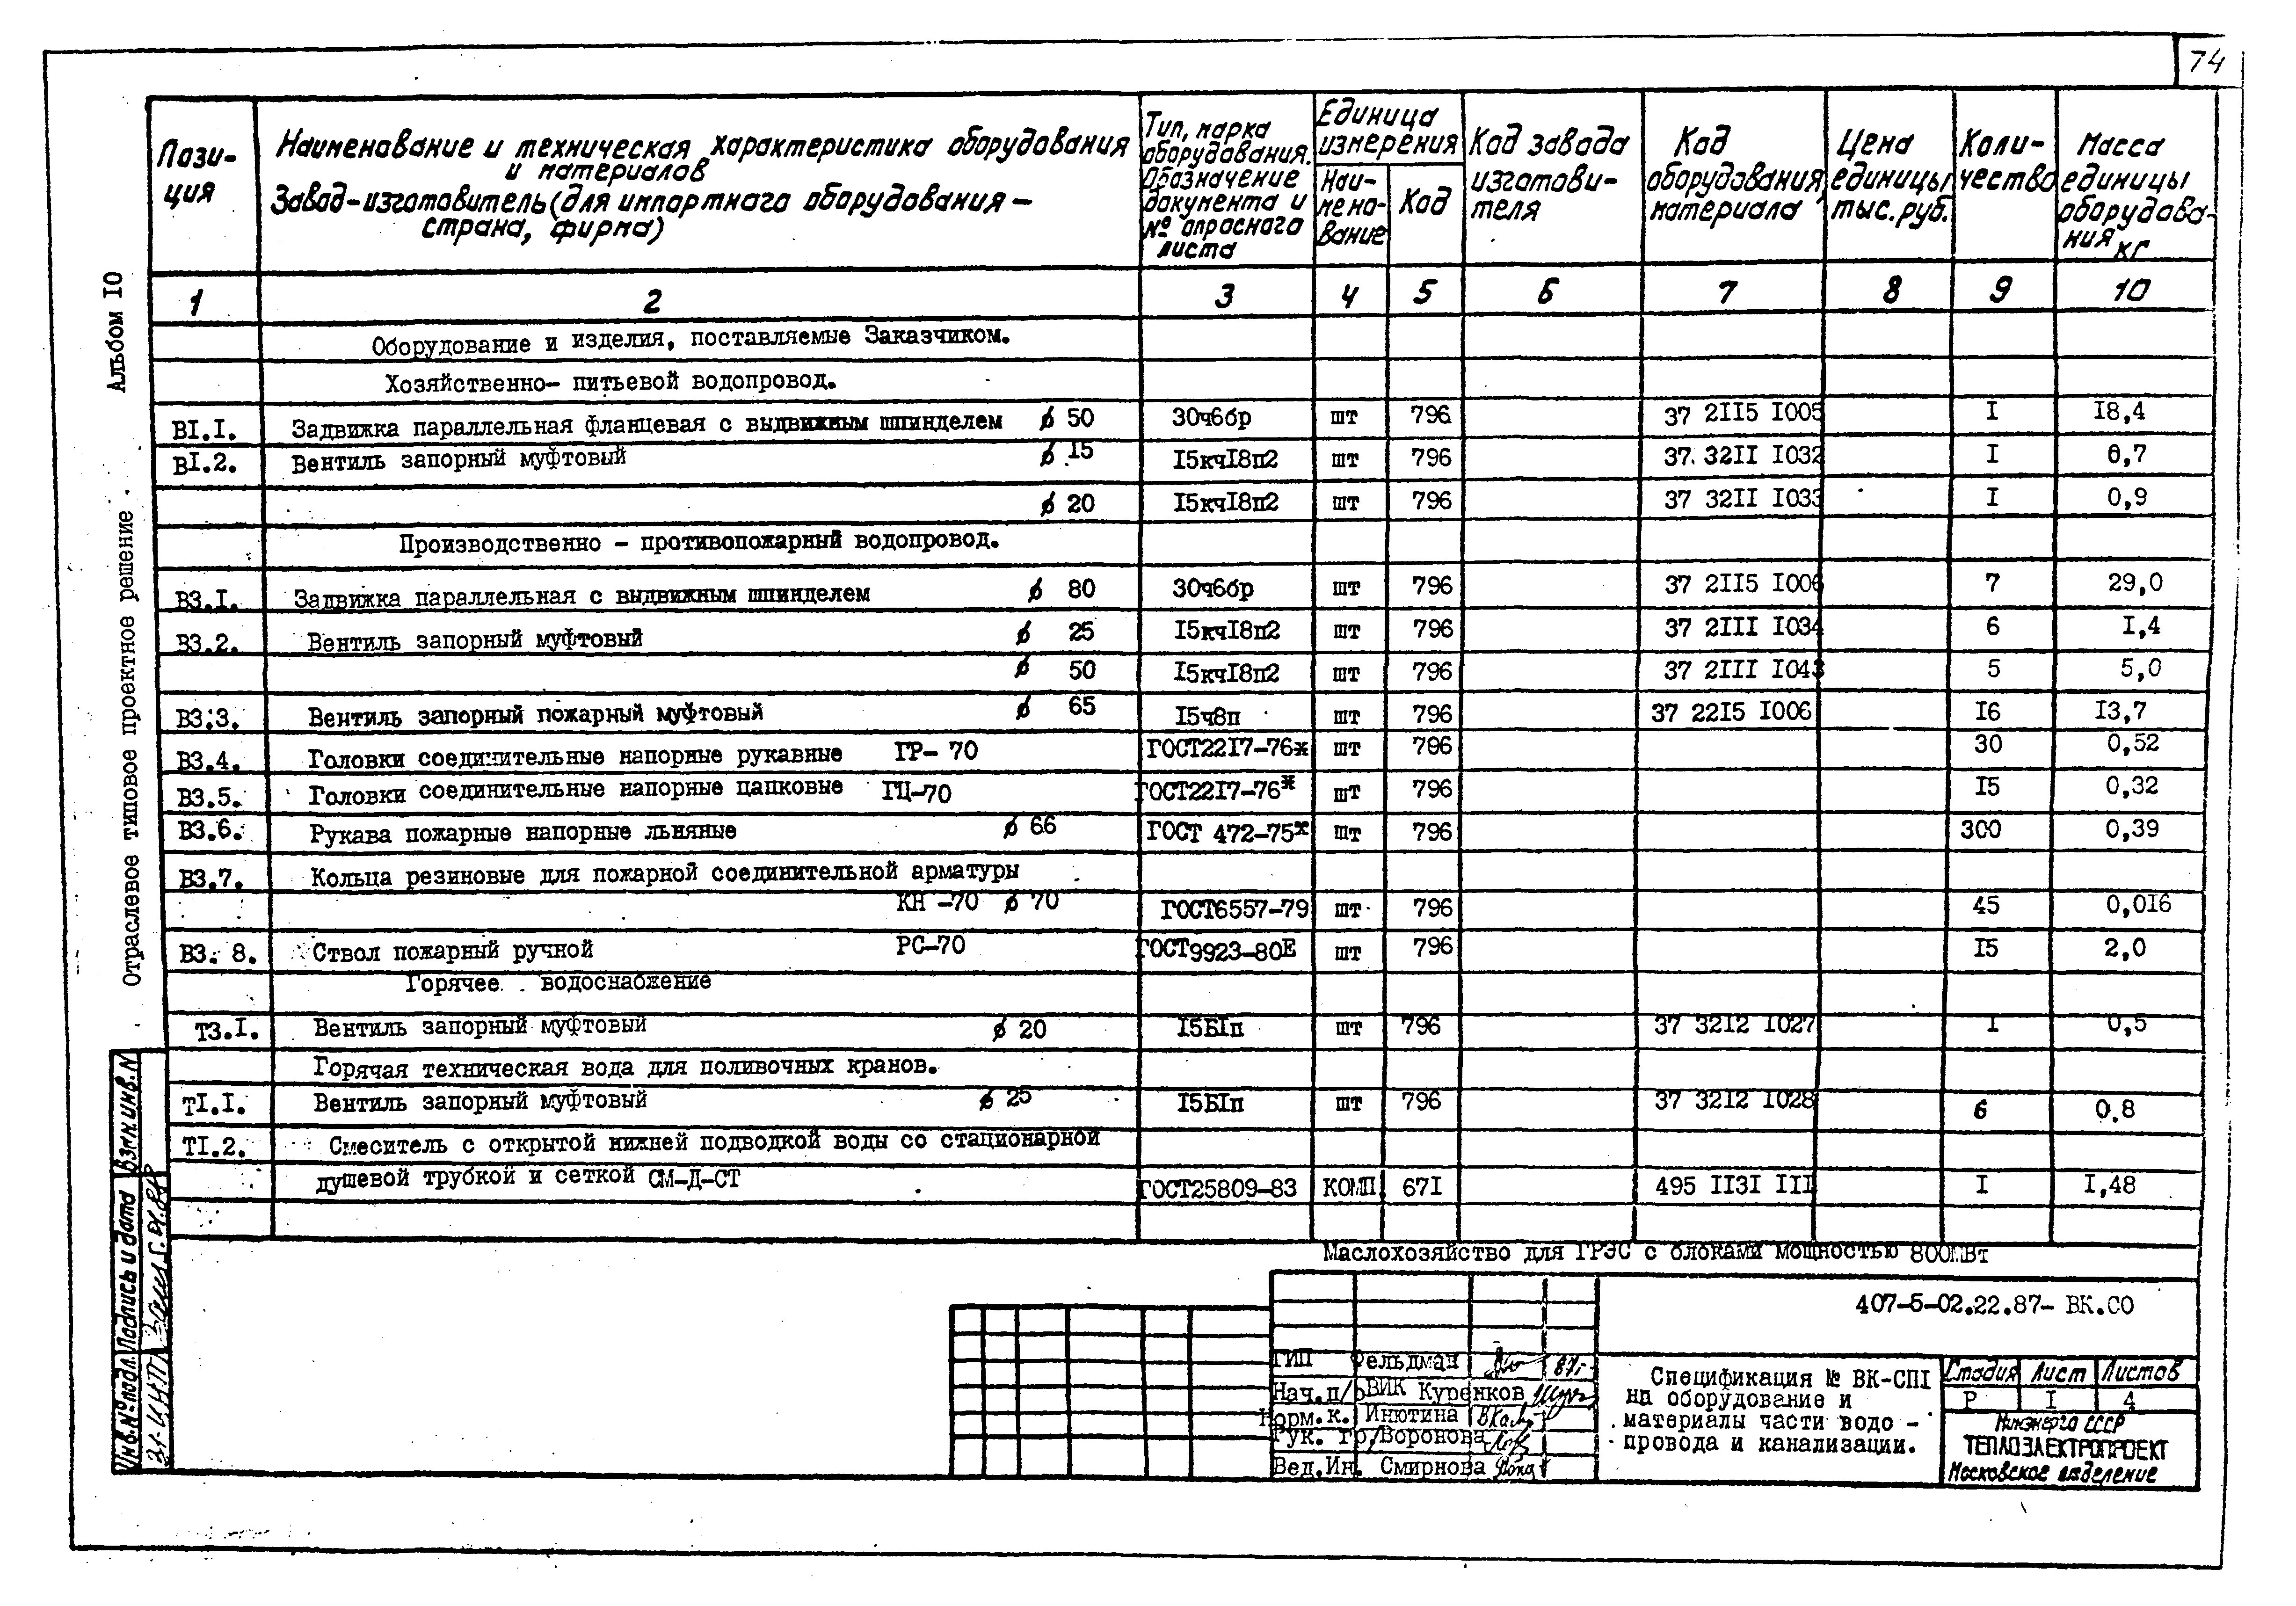 74
Пози-
ция
Наименование и техническая характеристика оборудования
и материалов
Завод-изготовитель (для импортного оборудования –
страна, фирма)
Тип, марка
оборудования.
Обозначение
документа и
№ опросного
листа
Единица
измерения
Наи-
мено-
вание
Код
Код завода
изготови-
теля
Код
оборудования,
материала
Цена
единицы
тыс. руб.
Коли-
чество
Масса
единицы
оборудова-
ния кг
1 2 3 4 5 6 7 8 9 10
Оборудование и изделия, поставляемые Заказчиком.
Хозяйственно- питьевой водопровод.
BI.I. Задвижка параллельная фланцевая с выдвижным шпинделем ϕ 50 30ч6бр шт 796 37 2II5 I005 I I8,4
BI.2. Вентиль запорный муфтовый ϕ 15 I5кчI8п2 шт 796 37 32II I032 I 0,7
ϕ 20 I5кчI8п2 шт 796 37 32II I033 I 0,9
Производственно – противопожарный водопровод.
В3.I. Задвижка параллельная с выдвижным шпинделем ϕ 80 30ч6бр шт 796 37 2II5 I006 7 29,0
В3.2. Вентиль запорный муфтовый ϕ 25 I5кчI8п2 шт 796 37 2III I034 6 I,4
ϕ 50 I5кчI8п2 шт 796 37 2III I043 5 5,0
В3.3. Вентиль запорный пожарный муфтовый ϕ 65 I5ч8п шт 796 37 22I5 I006 I6 I3,7
В3.4. Головки соединительные напорные рукавные ГР- 70 ГОСТ22I7-76ж шт 796 30 0,52
В3.5. Головки соединительные напорные цапковые ГЦ-70 ГОСТ22I7-76ж шт 796 I5 0,32
В3.6. Рукава пожарные напорные льняные ϕ 66 ГОСТ 472-75х шт 796 300 0,39
В3.7. Кольца резиновые для пожарной соединительной арматуры
КН -70 ϕ 70 ГОСТ6557-79 шт 796 45 0,0I6
В3. 8. Ствол пожарный ручной РС-70 ГОСТ9923-80Е шт 796 I5 2,0
Горячее водоснабжение
Т3.I. Вентиль запорный муфтовый ϕ 20 I5БIп шт 796 37 32I2 I027 I 0,5
Горячая техническая вода для поливочных кранов.
ТI.I. Вентиль запорный муфтовый ϕ 25 I5БIп шт 796 37 32I2 I028 6 0.8
ТI.2. Смеситель с открытой нижней подводкой воды со стационарной
душевой трубкой и сеткой СМ-Д-СТ ГОСТ25809-83 КОМП 67I 495 II3I III I I,48
Альбом I0
Отраслевое типовое проектное решение
Взам. инв. N
Подпись и дата
Инв. № подл.
Маслохозяйство для ГРЭС с блоками мощностью 800МВт
407-5-02.22.87- ВК.СО
ГИП Фельдман 87г.
Нач.п/о ВИК Куренков
Норм.к. Инютина
Рук. гр. Воронова
Вед.Ин. Смирнова
Спецификация № ВК-СПI
на оборудование и
материалы части водо –
провода и канализации.
Стадия Лист Листов
Р I 4
Минэнерго СССР
ТЕПЛОЭЛЕКТРОПРОЕКТ
Московское отделение